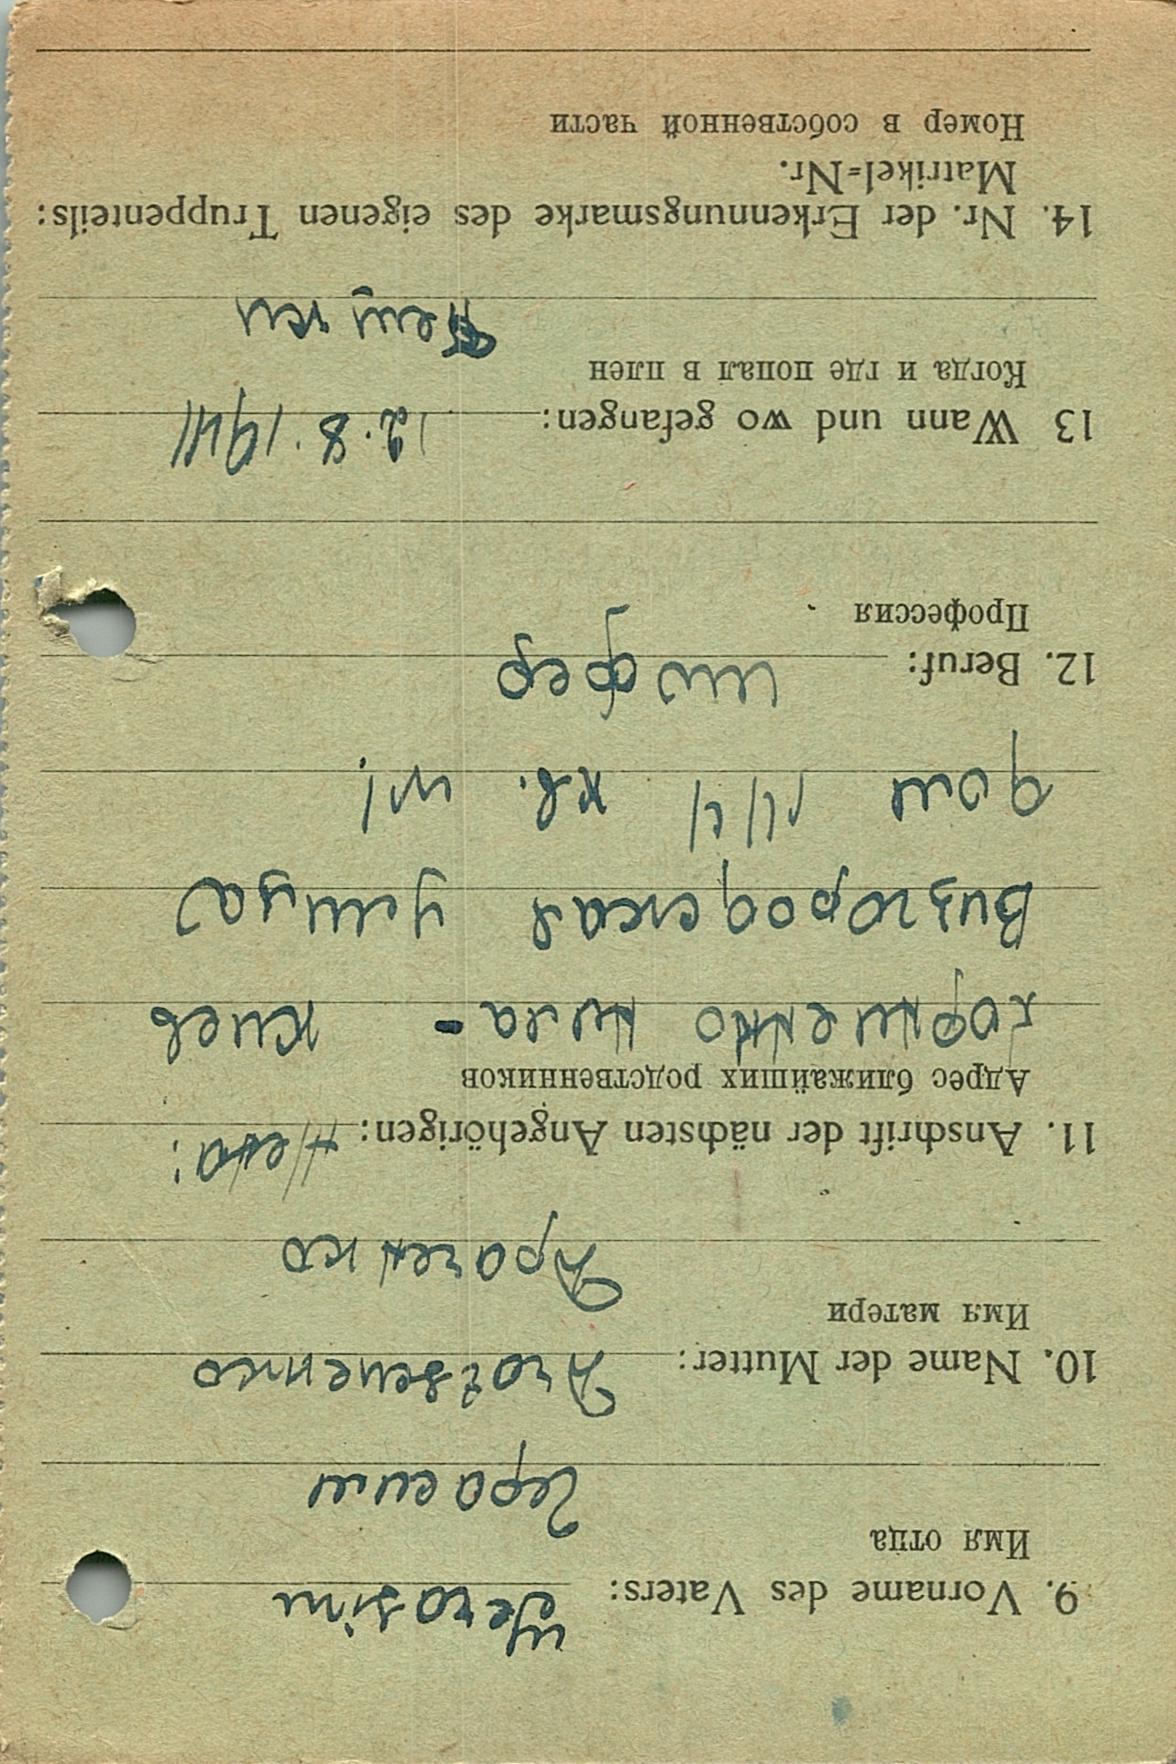 9. Vorname des Vaters: Gerasim
Имя отца
Герасим
10. Name der Mutter:
Имя матери
Драченко
11. Anschrift der nächsten Angehörigen: Жена:
Адрес ближайших родственников
Киев
улица
дом 14/4 кв.
12. Beruf: шофер
Профессия
13 Wann und wo gefangen: 12.8.1941
Когда и где попал в плен
14. Nr. der Erkennungsmarke des eigenen Truppenteils:
Matrikel=Nr.
Номер в собственной части